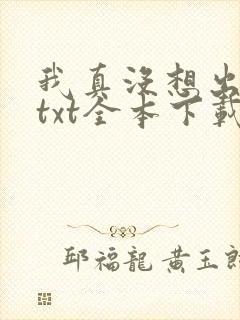 我真沒想出
txt全本下載
邱福龍 黄玉郎